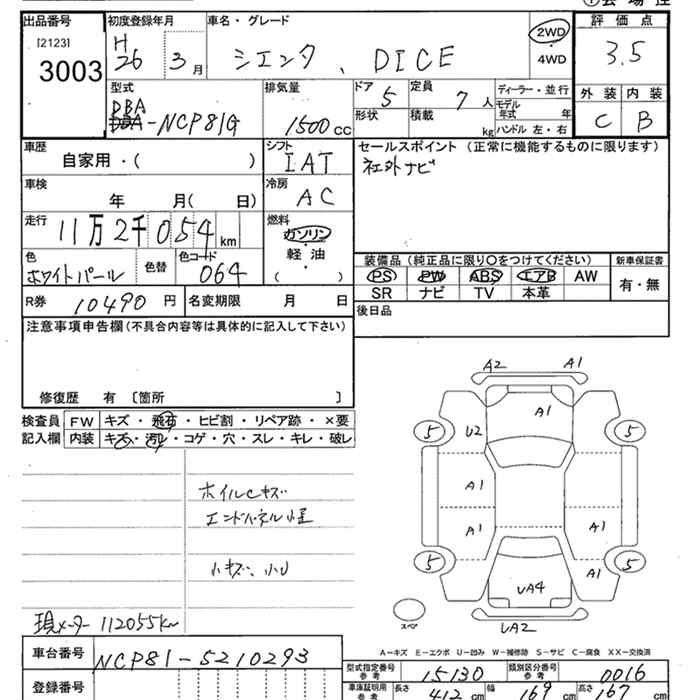 出品番号 初度登録年月 車名・グレード 評価点
[2123] 3003
H26 3月 シエンタ、DICE 2WD ・ 4WD 3.5
外装 内装
C B
型式 排気量 ドア 定員 ディーラー・並行
DBA DBA-NCP81G 1500cc 5 7人
形状 積載 kg モデル年式 年 ハンドル 左・右
車歴 シフト セールスポイント (正常に機能するものに限ります)
自家用・( ) IAT 社外ナビ
車検 年 月( 日) 冷房 AC
走行 11万2千054km 燃料 ガソリン 軽油 ( )
色 ホワイトパール 色替 色コード 064
装備品 (純正品に限り○をつけてください) 新車保証書
PS PW ABS エアB AW 有・無
SR ナビ TV 本革
R券 10490円 名変期限 月 日 後日品
注意事項申告欄(不具合内容等は具体的に記入して下さい)
修復歴 有 [箇所 ]
検査員 FW キズ・飛石・ヒビ割・リペア跡・×要
記入欄 内装 キズ・汚れ・コゲ・穴・スレ・キレ・破レ
A2 A1
A1
5 U2 5
A1
A1 A1
5 A1 5
UA4
スペア UA2
ホイルCキズ
エンドパネル小歪
小キズ、小U
現メーター 112055km
A-キズ E-エクボ U-凹み W-補修跡 S-サビ C-腐食 XX-交換済
車台番号 NCP81-5210293
型式指定番号 参考 15130 類別区分番号 参考 0016
登録番号
車庫証明用 参考 長さ 412cm 幅 169cm 高さ 167cm